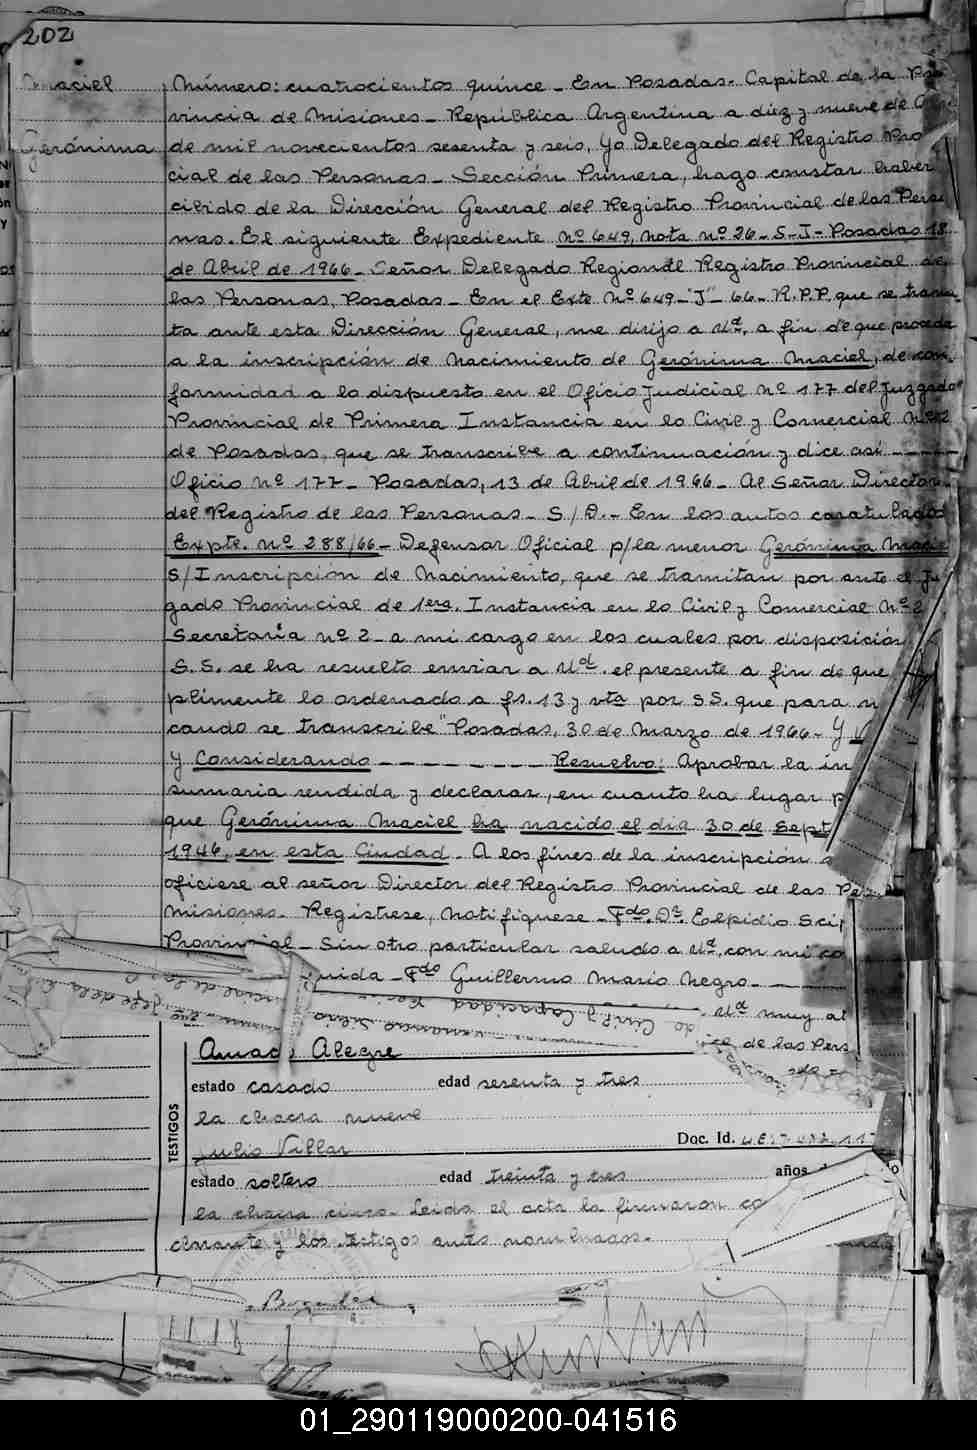 202
Maciel
Gerónima
Número: cuatrocientos quince - En Posadas - Capital de la Pro
vincia de Misiones - República Argentina a diez y nueve de
de mil novecientos sesenta y seis, Yo Delegado del Registro Pro
cial de las Personas - Sección Primera, hago constar haber
cibido de la Dirección General del Registro Provincial de las Perso
nas. El siguiente Expediente Nº 649, nota nº 26 - S-J - Posadas 18
de Abril de 1966 - Señor Delegado Regional Registro Provincial de
las Personas, Posadas - En el Exte Nº 649 - "J" - 66 - R.P.P. que se trami
ta ante esta Dirección General, me dirijo a Ud, a fin de que proceda
a la inscripción de Nacimiento de Gerónima Maciel, de con
formidad a lo dispuesto en el Oficio Judicial Nº 177 del Juzgado
Provincial de Primera Instancia en lo Civil y Comercial Nº 2
de Posadas, que se transcribe a continuación y dice así - - - -
Oficio Nº 177 - Posadas, 13 de Abril de 1966 - Al Señor Director
del Registro de las Personas - S/D. - En los autos caratulados
Expte. nº 288/66 - Defensor Oficial p/la menor Gerónima Maciel
S/Inscripción de Nacimiento, que se tramitan por ante el Ju
gado Provincial de 1era. Instancia en lo Civil y Comercial Nº 2
Secretaría nº 2 - a mi cargo en los cuales por disposición
S.S. se ha resuelto enviar a Ud. el presente a fin de que
plimente lo ordenado a fs. 13 y vta por SS. que para
cando se transcribe "Posadas, 30 de Marzo de 1966 - Y V
Y Considerando - - - - - - - - Resuelvo: Aprobar la in
sumaria rendida y declarar, en cuanto ha lugar p
que Gerónima Maciel ha nacido el día 30 de Sept
1946, en esta Ciudad. A los fines de la inscripción
oficiese al señor Director del Registro Provincial de las Per
Misiones - Registrese, Notifíquese - Fdo. Dr. Elpidio Scip
Provincial - Sin otro particular saludo a Ud, con mi co
uida - Fdo Guillermo Mario Negro - - -
Ud muy at
de las Pers
TESTIGOS
Amado Alegre
estado casado edad sesenta y tres
la chacra nueve
Julio Villar
Doc. Id.
estado soltero edad treinta y tres años
la chacra cinco - Leída el acta la firmaron co
clarante y los testigos antes nombrados -
01_290119000200-041516